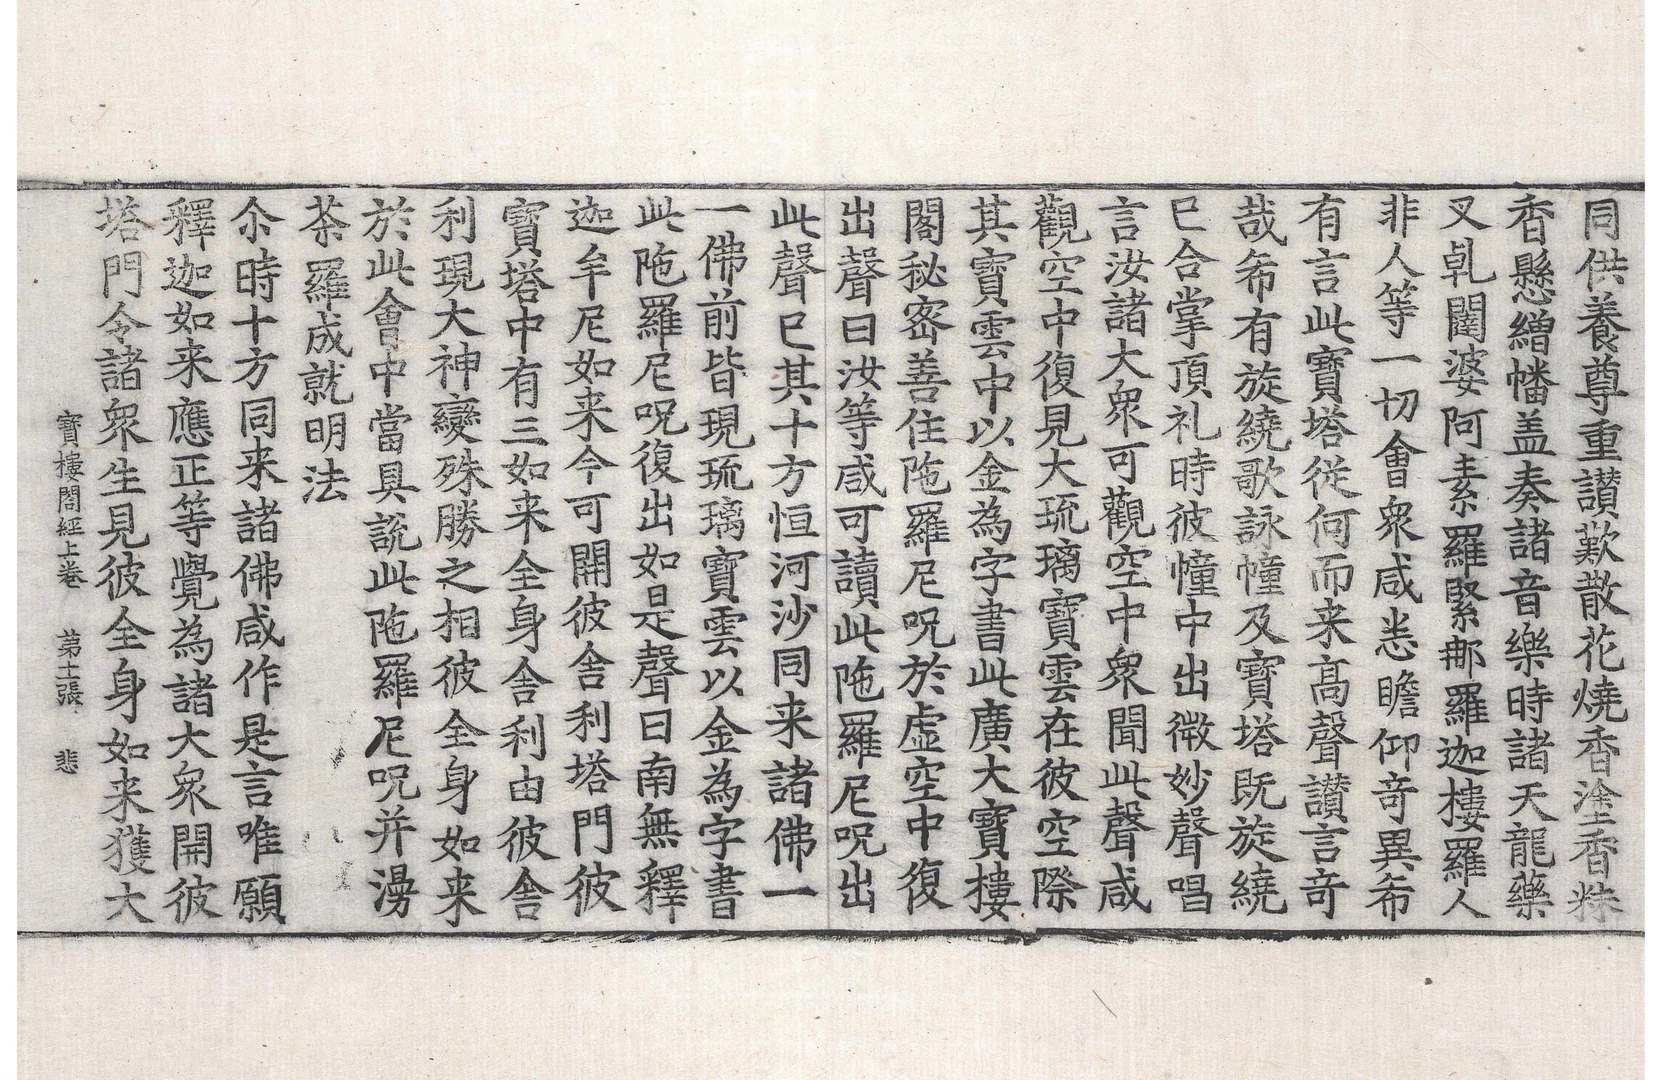 同供養尊重讃歎散花燒香塗香粖
香懸繒幡盖奏諸音樂時諸天龍藥
叉乹闥婆阿素羅緊那羅迦樓羅人
非人等一切會衆咸恙瞻仰竒異希
有言此寶塔従何而来髙聲讃言竒
哉希有旋繞歌詠幢及寶塔既旋繞
巳合掌頂礼時彼幢中出微妙聲唱
言汝諸大衆可觀空中衆聞此聲咸
觀空中復見大琉璃寶雲在彼空際
其寶雲中以金為字書此廣大寶樓
閣秘宻善住陁羅尼呪於虚空中復
出聲曰汝等咸可讀此陁羅尼呪出
此聲巳其十方恒河沙同来諸佛一
一佛前皆現琉璃寶雲以金為字書
此陁羅尼呪復出如是聲曰南無釋
迦牟尼如来今可開彼舍利塔門彼
寶塔中有三如来全身舍利由彼舍
利現大神變殊勝之相彼全身如来
於此會中當具説此陁羅尼呪并漫
茶羅成就明法
尒時十方同来諸佛咸作是言唯願
釋迦如来應正等覺為諸大衆開彼
塔門令諸衆生見彼全身如来獲大
寶樓閣經上卷 苐十一張 悲